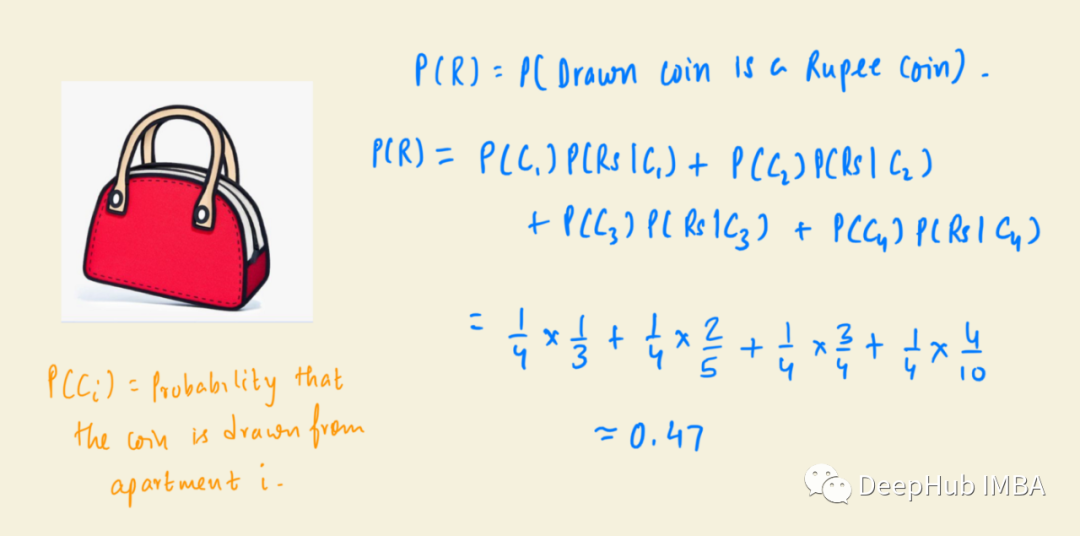 P(R) = P( Drawn coin is a Rupee coin) .
P(R) = P(C₁) P(Rs | C₁) + P(C₂) P(Rs | C₂)
+ P(C₃) P( Rs | C₃ ) + P(C₄) P( Rs | C₄ )
= 1/4 × 1/3 + 1/4 × 2/5 + 1/4 × 3/4 + 1/4 × 4/10
≈ 0.47
P(Cᵢ) = Probability that
the coin is drawn from
apartment i .
DeepHub IMBA